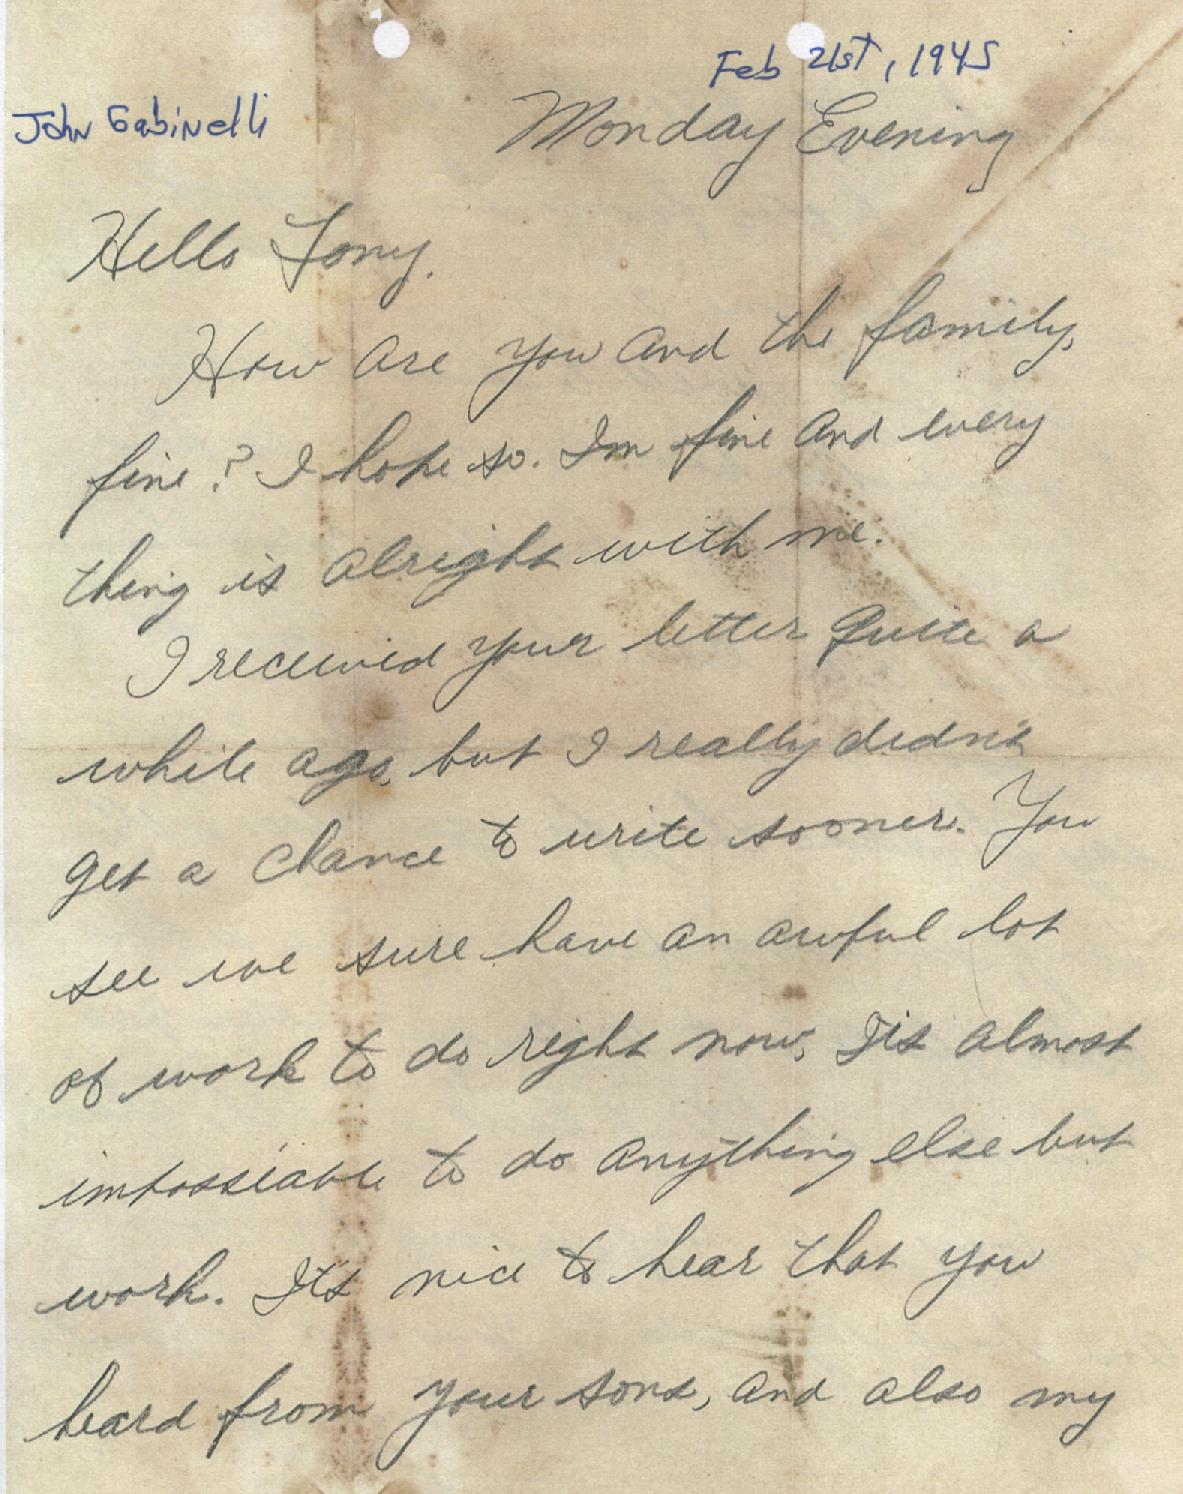 Feb 21st, 1945
John Gabinelli
Monday Evening
Hello Tony.
How are you and the family,
fine? I hope so. Im fine and every
thing is alright with me.
I received your letter quite a
while ago, but I really didn't
get a chance to write sooner. You
see we sure have an awful lot
of work to do right now, Its almost
impossiable to do anything else but
work. It's nice to hear that you
heard from your sons, and also my